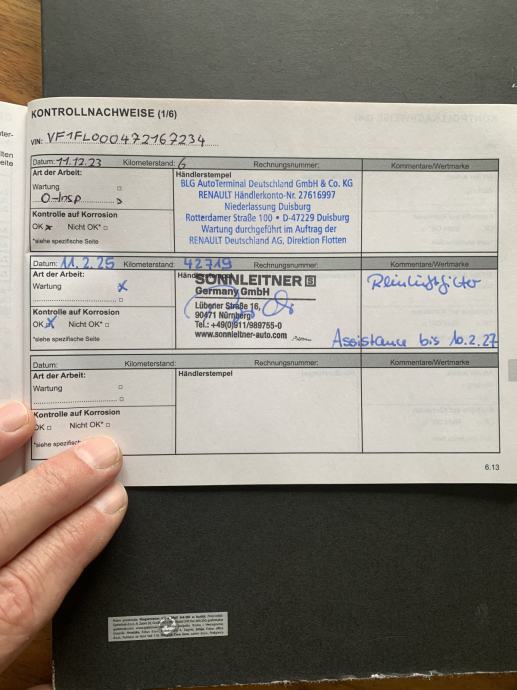 KONTROLLNACHWEISE (1/6)
VIN: VF1FL000472167234
Datum: 11.12.23 Kilometerstand: 6 Rechnungsnummer: Kommentare/Wertmarke
Art der Arbeit: Händlerstempel
Wartung
O-Insp
Kontrolle auf Korrosion
OK Nicht OK*
*siehe spezifische Seite
BLG AutoTerminal Deutschland GmbH & Co. KG
RENAULT Händlerkonto-Nr. 27616997
Niederlassung Duisburg
Rotterdamer Straße 100 • D-47229 Duisburg
Wartung durchgeführt im Auftrag der
RENAULT Deutschland AG, Direktion Flotten
Datum: 11.2.25 Kilometerstand: 42719 Rechnungsnummer: Kommentare/Wertmarke
Art der Arbeit:
Wartung x
Kontrolle auf Korrosion
OK x Nicht OK*
*siehe spezifische Seite
SONNLEITNER S
Germany GmbH
Lübener Straße 16,
90471 Nürnberg
Tel.: +49(0)911/989755-0
www.sonnleitner-auto.com
Reinluftfilter
Assistance bis 10.2.27
Datum: Kilometerstand: Rechnungsnummer: Kommentare/Wertmarke
Art der Arbeit: Händlerstempel
Wartung
Kontrolle auf Korrosion
OK Nicht OK*
*siehe
6.13